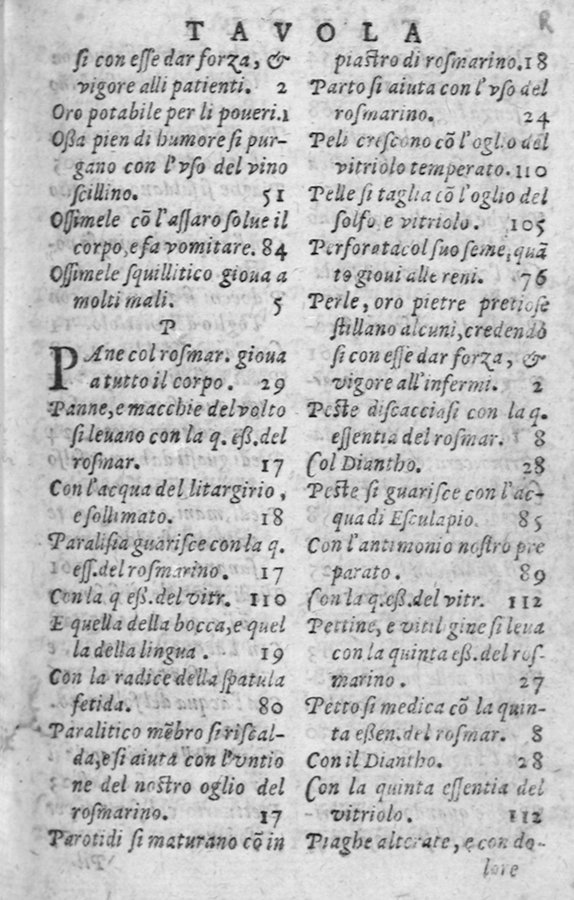 TAVOLA
R
si con esse dar forza, &
vigore alli patienti. 2
Oro potabile per li poueri.1
Oßa pien di humore si pur-
gano con l'vso del vino
scillino. 51
Ossimele cõ l'assaro solue il
corpo, e fa vomitare. 84
Ossimele squillitico gioua a
molti mali. 5
P
PAne col rosmar. gioua
a tutto il corpo. 29
Panne, e macchie del volto
si leuano con la q. eß. del
rosmar. 17
Con l'acqua del litargirio,
e sollimato. 18
Paralisia guarisce con la q.
ess. del rosmarino. 17
Con la q eß. del vitr. 110
E quella della bocca, e quel
la della lingua. 19
Con la radice della spatula
fetida. 80
Paralitico mẽbro si riscal-
da, e si aiuta con l'vntio
ne del nostro oglio del
rosmarino. 17
Parotidi si maturano cõ in
piastro di rosmarino. 18
Parto si aiuta con l'vso del
rosmarino. 24
Peli crescono cõ l'oglio del
vitriolo temperato. 110
Pelle si taglia cõ l'oglio del
solfo e vitriolo. 105
Perforata col suo seme, quã
to gioui alle reni. 76
Perle, oro pietre pretiose
stillano alcuni, credendo
si con esse dar forza, &
vigore all'infermi. 2
Peste discacciasi con la q.
essentia del rosmar. 8
Col Diantho. 28
Peste si guarisce con l'ac-
qua di Esculapio. 85
Con l'antimonio nostro pre
parato. 89
Con la q. eß. del vitr. 112
Pettine, e vitiligine si leua
con la quinta eß. del ros-
marino. 27
Petto si medica cõ la quin-
ta eßen. del rosmar. 8
Con il Diantho. 28
Con la quinta essentia del
vitriolo. 112
Piaghe alterate, e con do-
lore